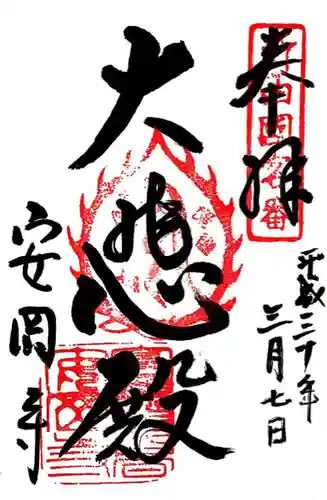 奉拝
新西国客番
平成三十年
三月七日
大悲殿
安岡寺